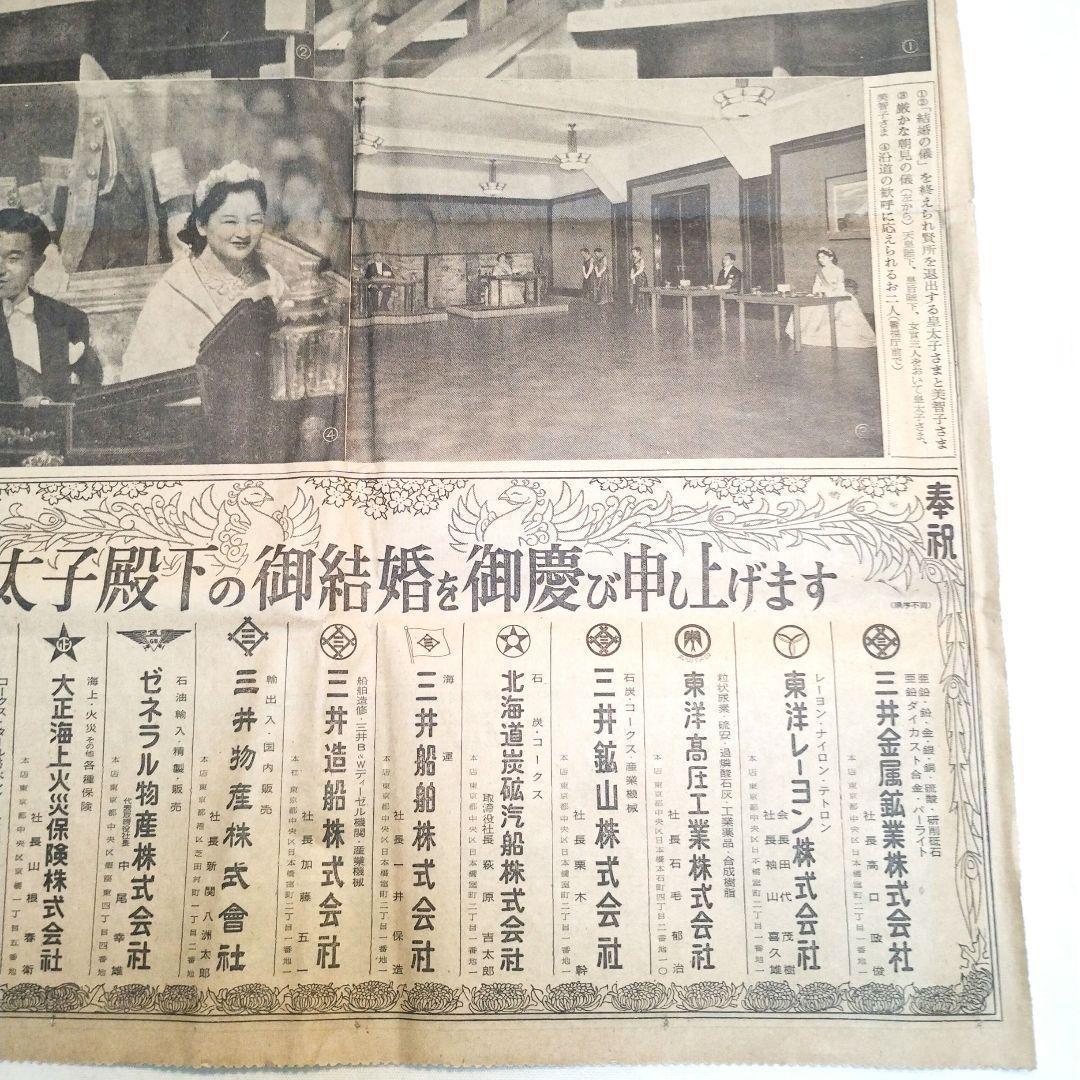 ②
①
①②「結婚の儀」を終えられ賢所を退出する皇太子さまと美智子さま
③厳かな朝見の儀(左から)天皇陛下、皇后陛下、女官三人をおいて皇太子さま、
美智子さま ④沿道の歓呼に応えられるお二人(警視庁前で)
④
奉祝
太子殿下の御結婚を御慶び申し上げます
(順序不同)
亜鉛・鉛・金・銀・銅・硫酸・研削砥石
亜鉛ダイカスト合金・パーライト
三井金属鉱業株式会社
社長 高口政俊
本店 東京都中央区日本橋室町二丁目一番地一
レーヨン・ナイロン・テトロン
東洋レーヨン株式会社
会長 田代茂樹
社長 袖山喜久雄
本店 東京都中央区日本橋室町二丁目一番地一
粒状尿素・硫安・過燐酸石灰・工業薬品・合成樹脂
東洋高圧工業株式会社
社長 石毛郁治
本店 東京都中央区日本橋本石町四丁目二番地一〇
石炭・コークス・産業機械
三井鉱山株式会社
社長 栗木幹
本店 東京都中央区日本橋室町二丁目一番地一
石炭・コークス
北海道炭礦汽船株式会社
取締役社長 萩原吉太郎
海運
三井船舶株式会社
社長 一井保造
本店 東京都中央区日本橋室町二丁目一番地一
船舶造修・三井B&Wディーゼル機関・産業機械
三井造船株式会社
社長 加藤五一
本社 東京都中央区日本橋室町二丁目一番地一
輸出入・国内販売
三井物産株式會社
社長 新関八洲太郎
本店 東京都港区芝田村町一丁目二番地
石油輸入精製・販売
GB
ゼネラル物産株式会社
代表取締役社長 中尾幸雄
本店 東京都中央区銀座東四丁目四番地
海上・火災その他各種保険
大正海上火災保険株式会社
社長 山根春衛
本店 東京都中央区京橋一丁目五番地